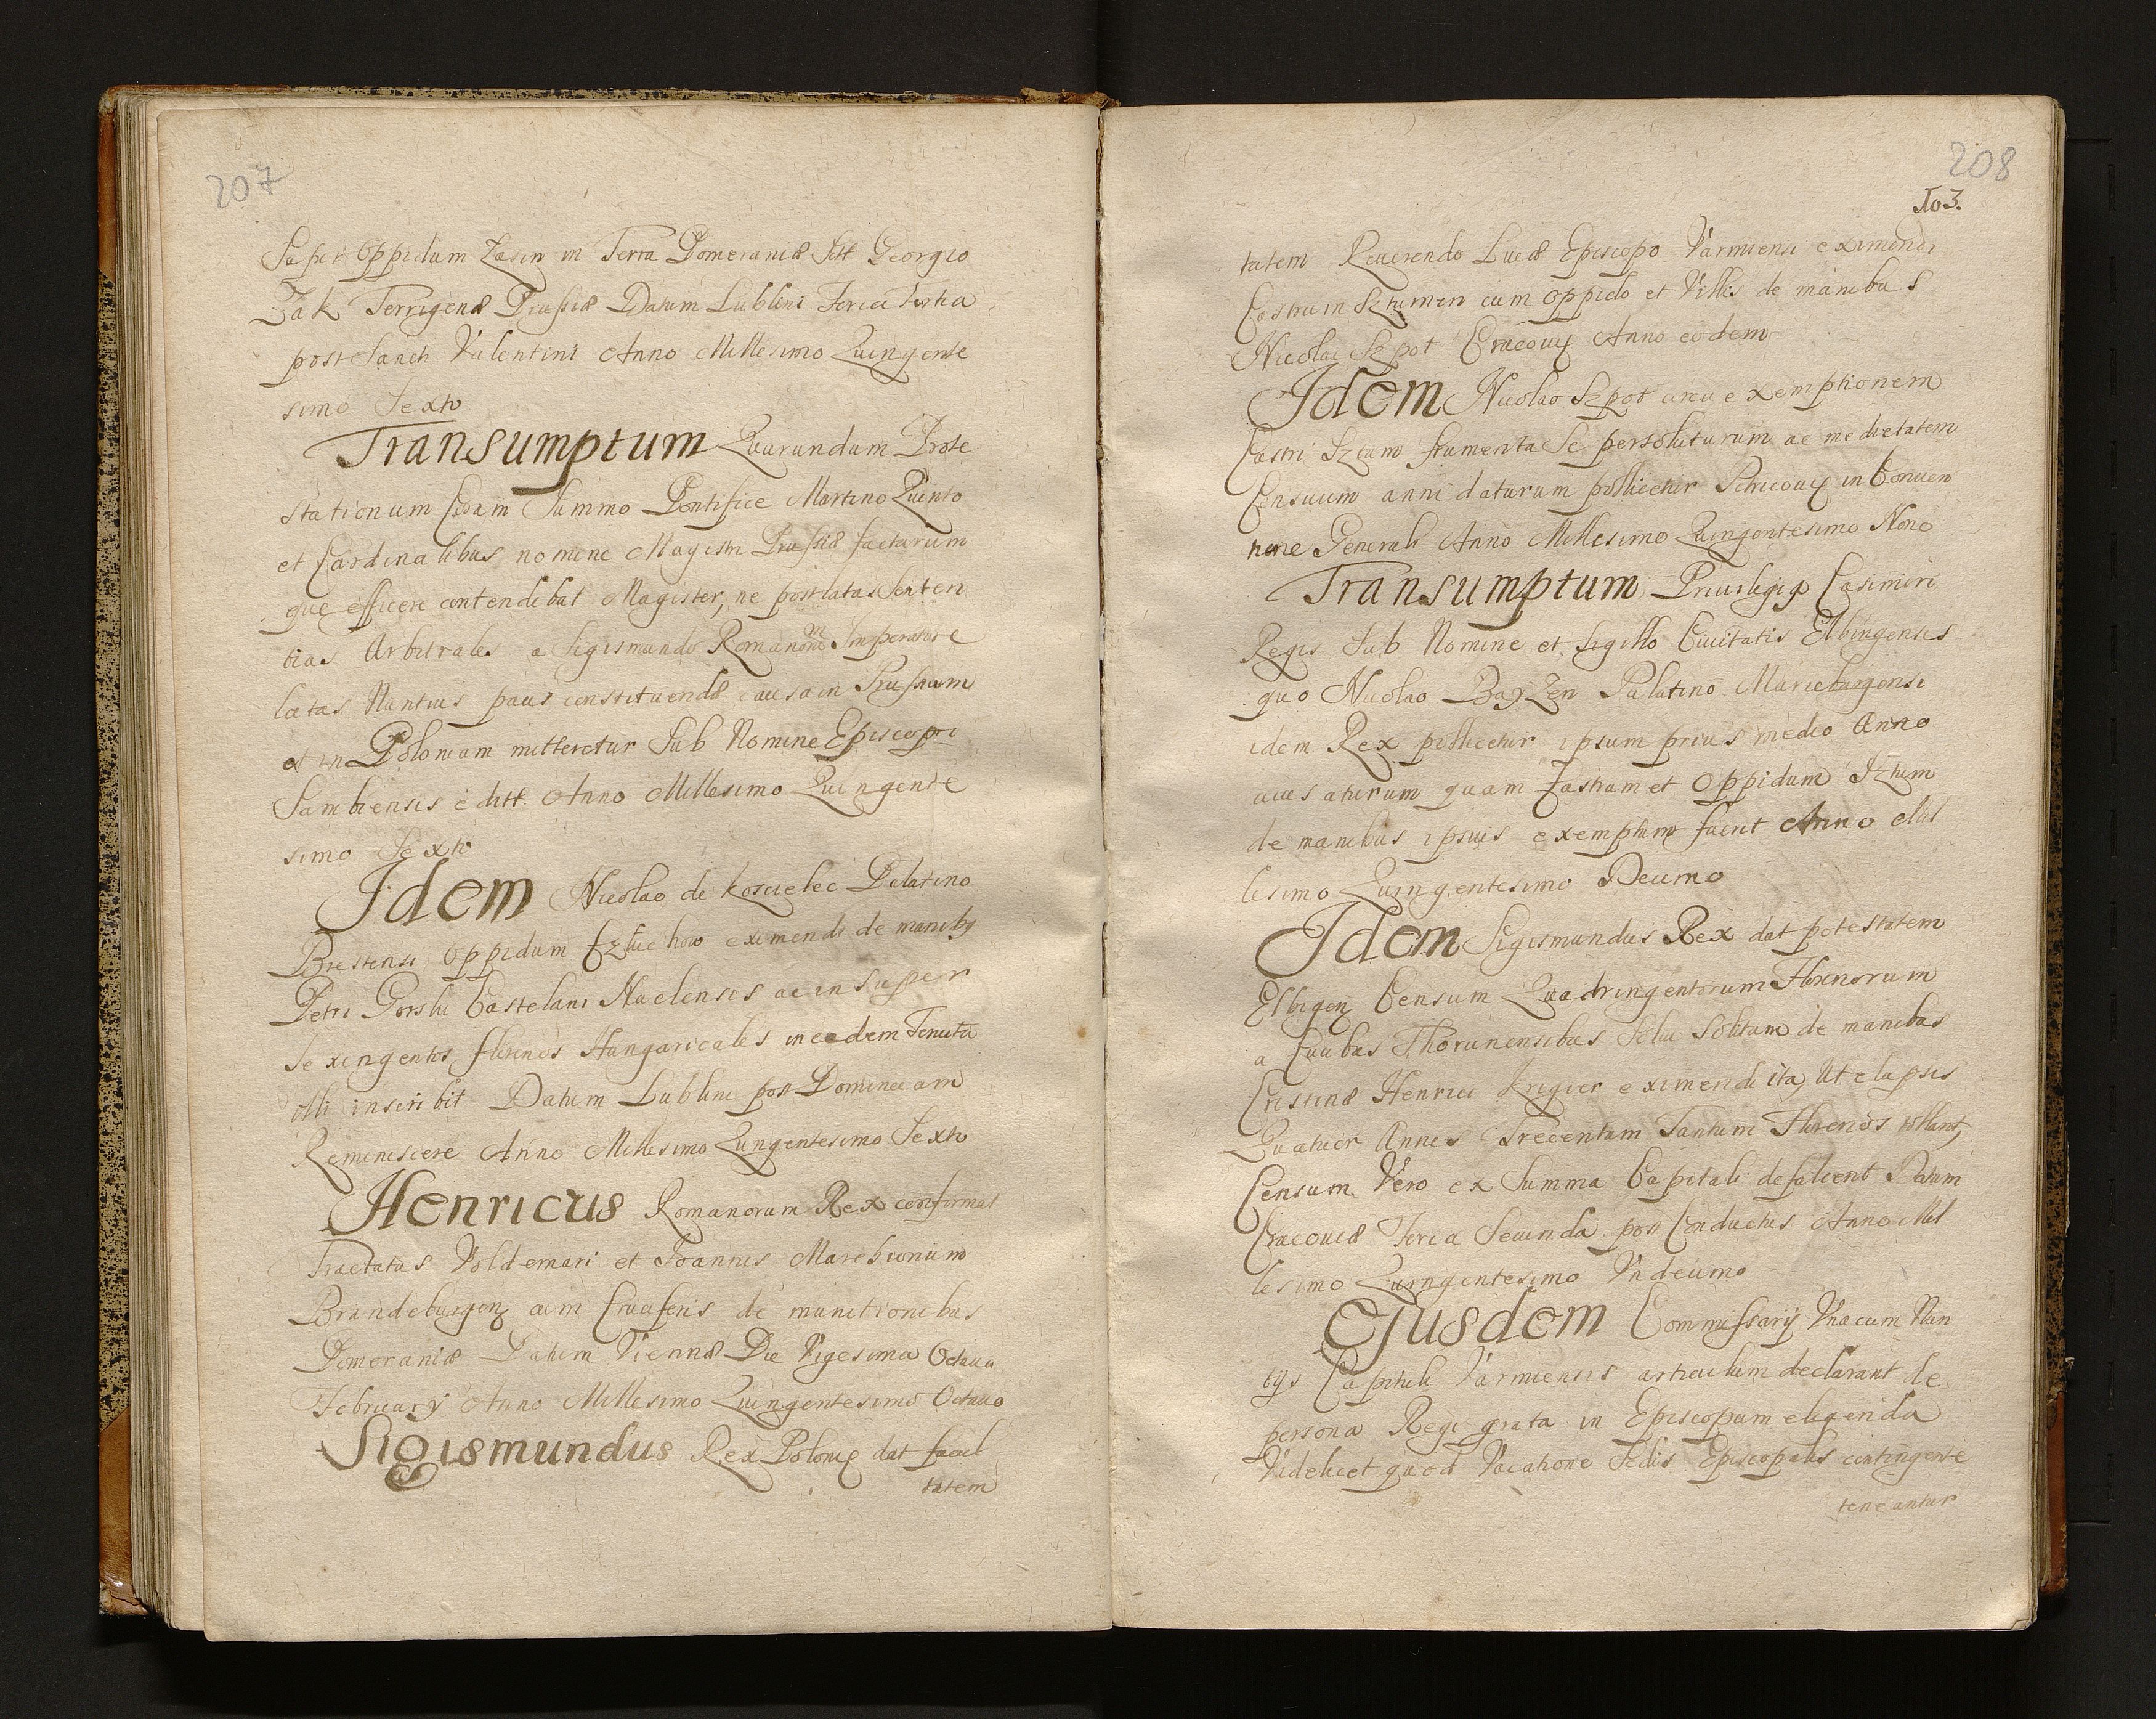 207
Super Oppidum Zasin in Terra Pomeraniæ Sitt Georgio
Zak Terrigenæ Prussiæ Datum Lublini Feria tertia
post Sancti Valentini Anno Millesimo Quingente
simo Sexto
Transumptum Quarundam Prote
stationum Coram Summo Pontifice Martino Quinto
et Cardinalibus nomine Magistri Prussiæ factarum
que efficere contendebat Magister, ne post latas Senten
tias Arbitrales a Sigismundo Romanorum Imperatore
latas Nuntius pacis constituendæ causa in Prussiam
et in Poloniam mitteretur Sub Nomine Episcopi
Sambiensis editt Anno Millesimo Quingente
simo Sexto
Idem Nicolao de Koscielec Palatino
Brestensi Oppidum Czluchow eximendi de manibus
Petri Gorski Castelani Naclensis ac insuper
Sexingentos florenos Hungaricales in eadem Tenuta
illi inscribit Datum Lublini post Dominicam
Reminiscere Anno Millesimo Quingentesimo Sexto
Henricus Romanorum Rex confirmat
Tractatus Voldemari et Joannis Marchionum
Brandeburgen cum Cruciferis de munitionibus
Pomeraniæ Datum Viennæ Die Vigesima Octaua
February Anno Millesimo Quingentesimo Octauo
Sigismundus Rex Poloniæ dat facul
tatem
208
103.
tatem Reuerendo Lucæ Episcopo Varmiensi eximendi
Castrum Sztumen cum Oppido et Villis de manibus
Nicolai Szpot Cracouiæ Anno eodem
Idem Nicolao Szpot circa exemptionem
Castri Sztum frumenta Se persoluturum ac medietatem
Censuum anni daturum pollicetur Petricouiæ in Conuen
tione Generali Anno Millesimo Quingentesimo Nono
Transumptum Priuilegij Casimiri
Regis Sub Nomine et Sigillo Ciuitatis Elbingensis
quo Nicolao Bayzen Palatino Marieburgensi
idem Rex pollicetur ipsum prius medio Anno
auisaturum quam Castrum et Oppidum Sztum
de manibus ipsius exemptum fuerit Anno Mil
lesimo Quingentesimo Decimo
Idem Sigismundus Rex dat potestatem
Elbigen Censum Quadringentorum Florenorum
a Ciuibus Thorunensibus Solui Solitum de manibus
Cristinæ Henrici Krigier eximendi ita, Ut elapsis
Quatuor Annis Trecentum Tantum Florenos tollant,
Censum Vero ex Summa Capitali defalcent Datum
Cracouiæ Feria Secunda post Conductus Anno Mil
lesimo Quingentesimo Vndecimo
Ejusdem Commissarij Vnacum Nun
tijs Capituli Varmiensis articulum declarant de
persona Regi grata in Episcopum eligenda
Videlicet quod Vacatione Sedis Episcopalis contingente
teneantur